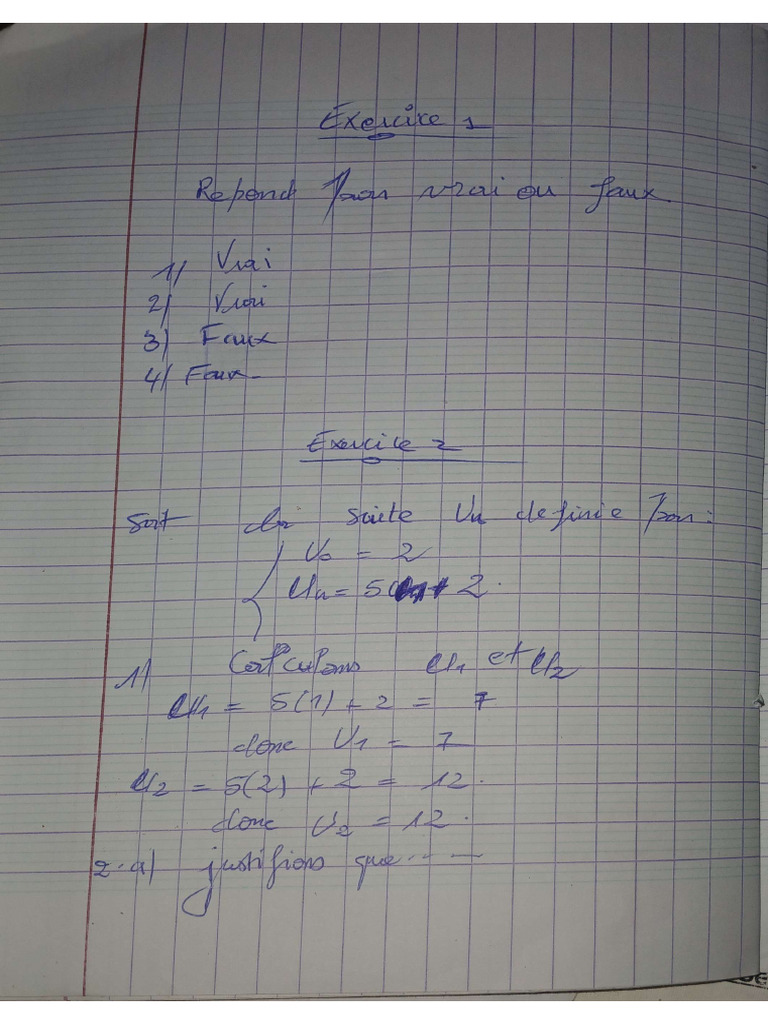 Exercice 1
Repond par vrai ou faux.
1/ Vrai
2/ Vrai
3/ Faux
4/ Faux
Exercice 2
Soit la suite Un definie par :
U0 = 2
Un = 5 + 2.
1/ Calculons U1 et U2
U1 = 5(1) + 2 = 7
donc U1 = 7
U2 = 5(2) + 2 = 12.
donc U2 = 12.
2.a) justifions que......